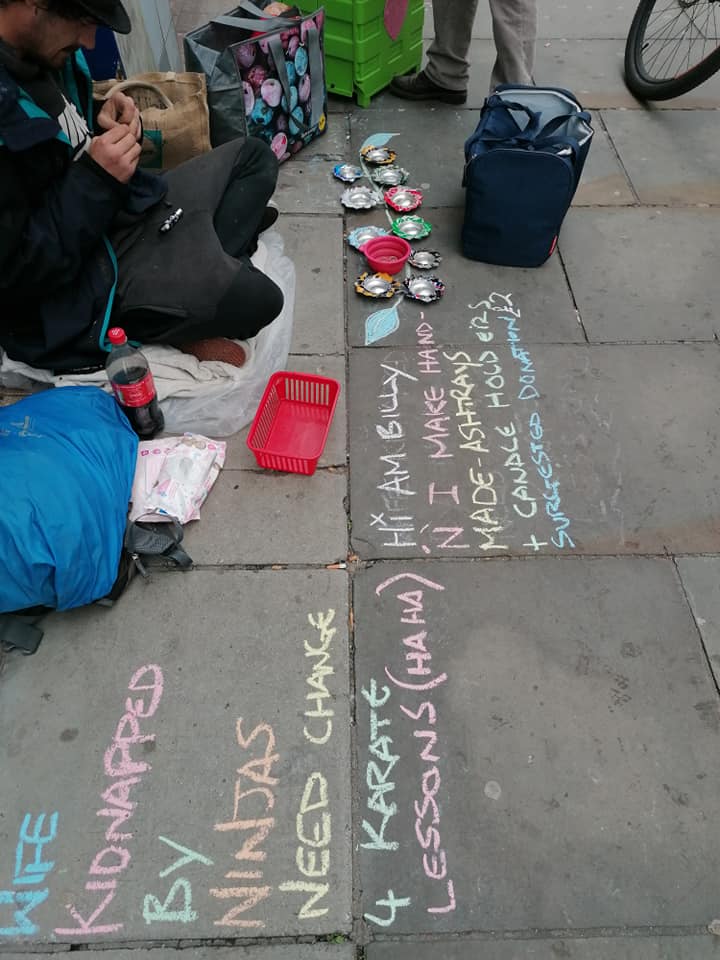 HI AM BILLY
N I MAKE HAND-
MADE-ASHTRAYS
+ CANDLE HOLDERS
SUGGESTED DONATION £2
WIFE
KIDNAPPED
BY
NINJAS
NEED CHANGE
4 KARATE
LESSONS (HA HA)